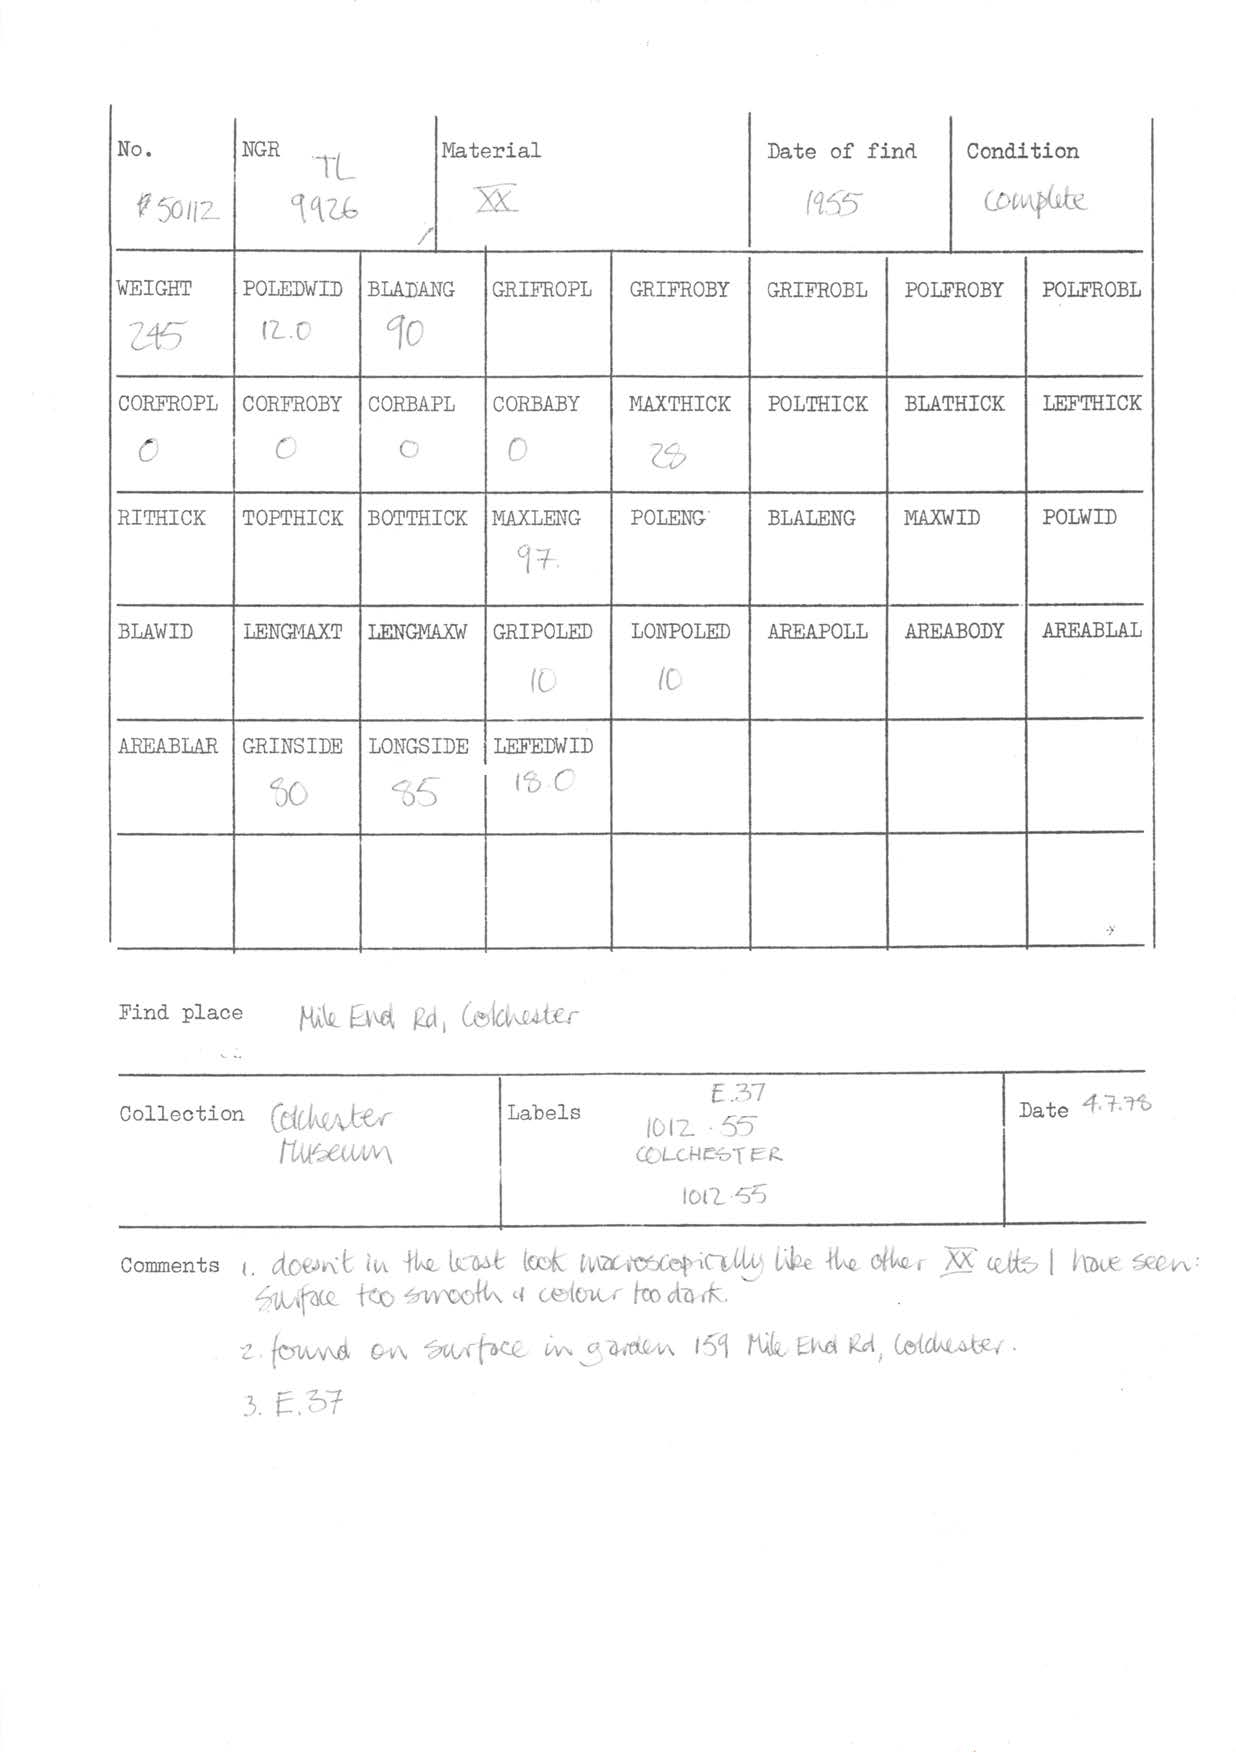 No. NGR Material Date of find Condition
TL
50112 9926 XX 1955 complete
WEIGHT POLEDWID BLADANG GRIFROPL GRIFROBY GRIFROBL POLFROBY POLFROBL
245 12.0 90
CORFROPL CORFROBY CORBAPL CORBABY MAXTHICK POLTHICK BLATHICK LEFTHICK
0 0 0 0 28
RITHICK TOPTHICK BOTTHICK MAXLENG POLENG BLALENG MAXWID POLWID
97.
BLAWID LENGMAXT LENGMAXW GRIPOLED LONPOLED AREAPOLL AREABODY AREABLAL
10 10
AREABLAR GRINSIDE LONGSIDE LEFEDWID
80 85 18.0
Find place Mile End Rd, Colchester
Collection Colchester Museum
Labels E.37
1012.55
COLCHESTER
1012.55
Date 4.7.78
Comments 1. doesn't in the least look macroscopically like the other XX celts I have seen:
surface too smooth & colour too dark.
2. found on surface in garden 159 Mile End Rd, Colchester.
3. E.37